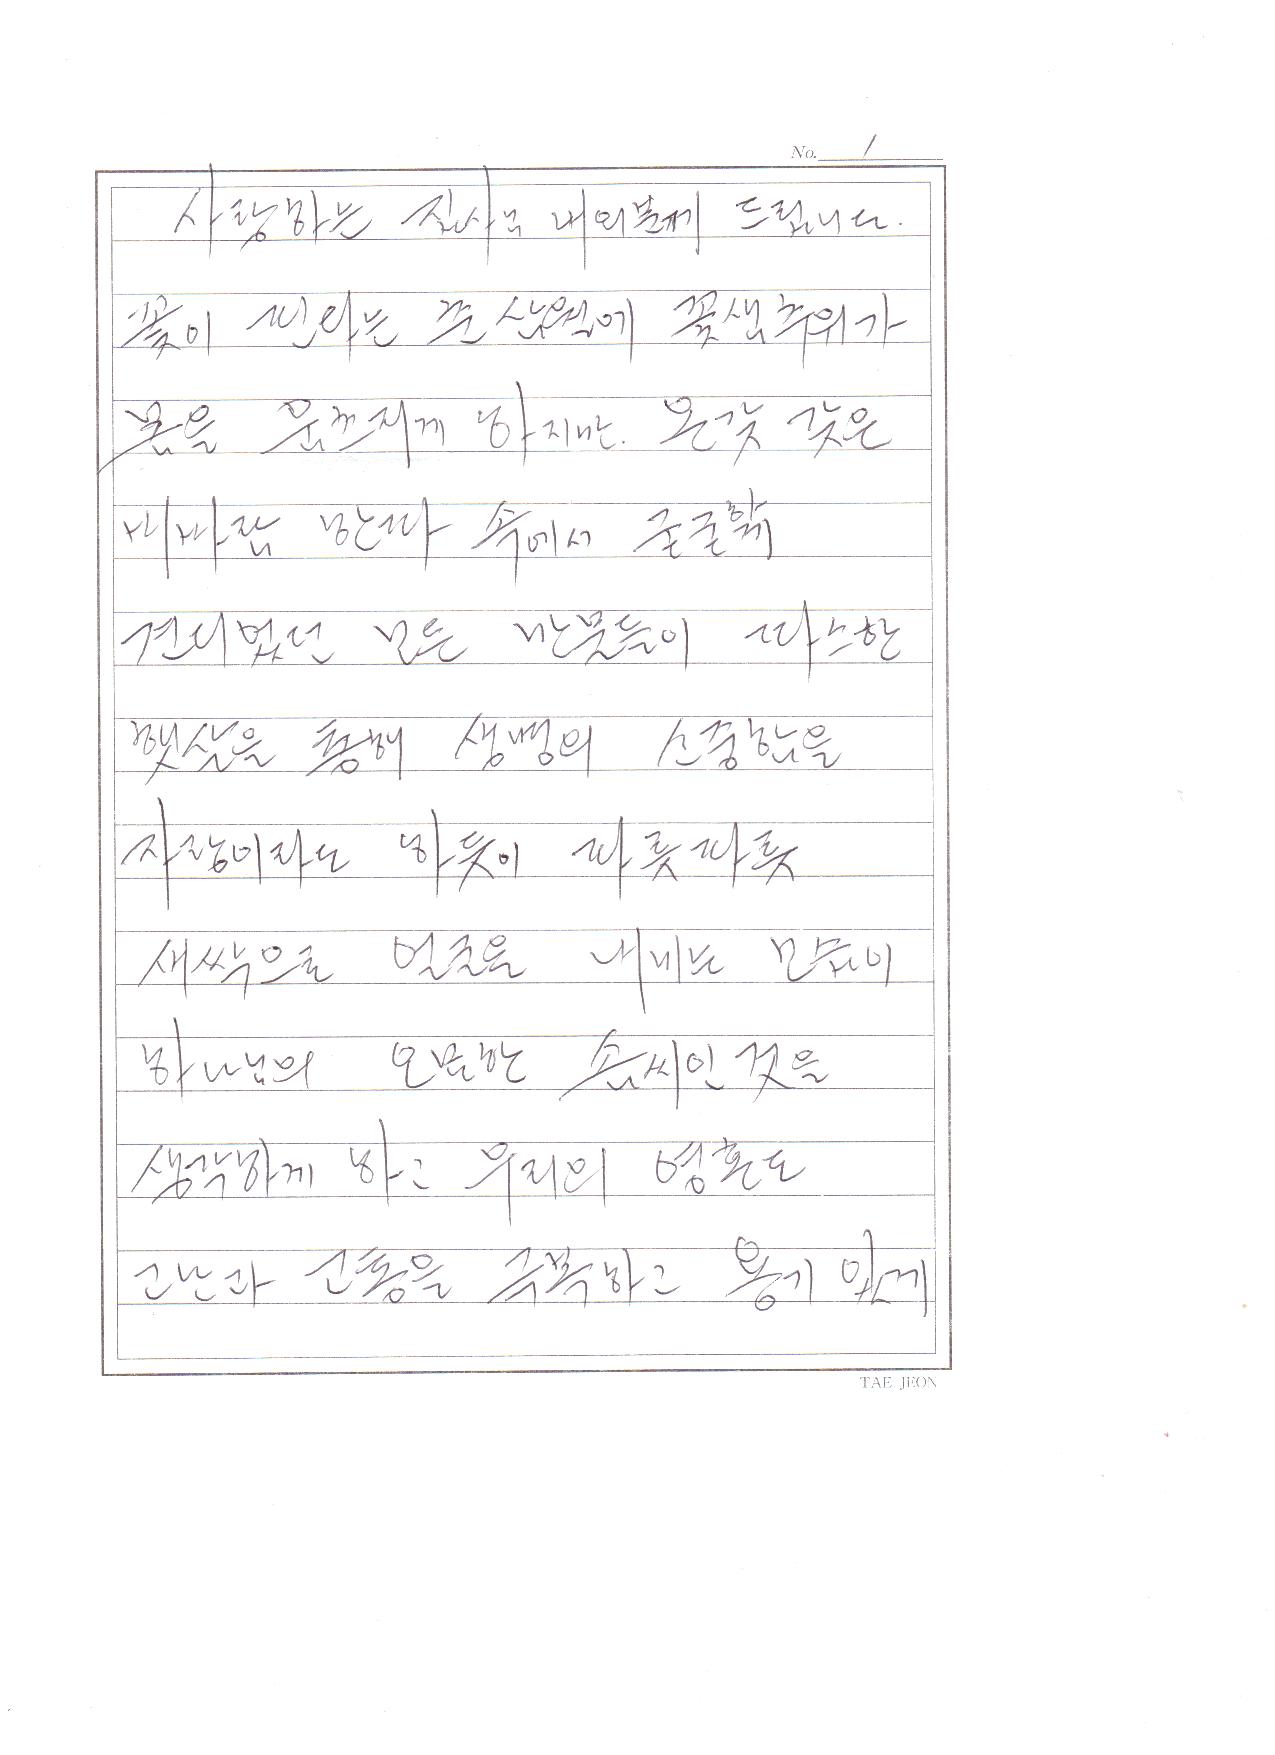 No. 1
사랑하는 집사님 내외분께 드립니다.
꽃이 핀다는 춘삼월에 꽃샘추위가
몸을 움츠리게 하지만. 온갖 갖은
비바람 한파 속에서 굳굳히
견디었던 모든 만물들이 따스한
햇살을 통해 생명의 소중함을
자랑이라도 하듯이 파릇파릇
새싹으로 얼굴을 내미는 모습이
하나님의 오묘한 솜씨인 것을
생각하게 하고 우리의 영혼도
고난과 고통을 극복하고 용기 있게
TAE JEON